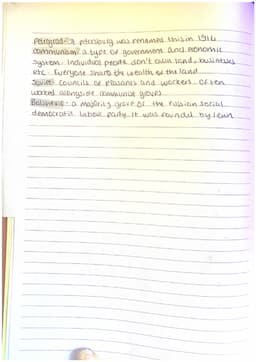 Petrograd - st petersburg was renamed this in 1914
communism - a type of government and economic
system. Individual people don't own land, businesses
etc. Everyone shares the wealth of the land
Soviet - councils of peasants and workers. Often
worked alongside communist groups
Bolsheviks - a majority group of the russian social
democratic labour party. It was founded by lenin